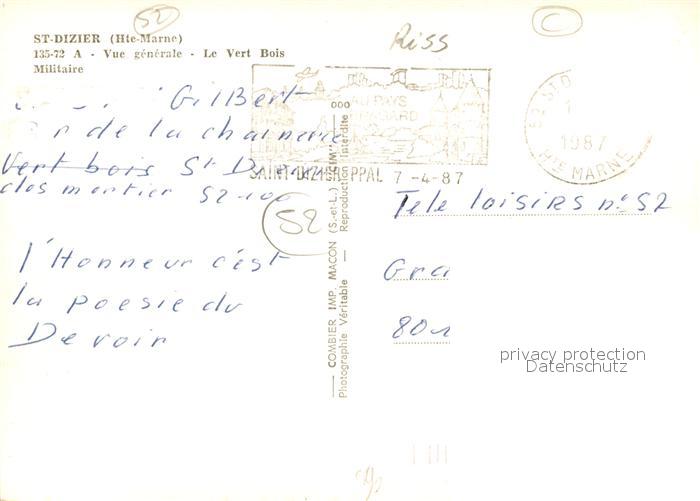 52
C
Riss
ST-DIZIER (Hte-Marne)
135-72 A - Vue générale - Le Vert Bois
Militaire
AU PAYS
SAINT-DIZIER PPAL 7-4-87
1987
HTE MARNE
Gilbert
de la chainerie
Vert bois St D
clos mortier 52100
52
l'Honneur c'est
la poesie du
Devoir
COMBIER IMP. MACON (S.-et-L.) "CIM"
Photographie Véritable — Reproduction Interdite
Télé loisirs n° 52
Gra
80
privacy protection
Datenschutz